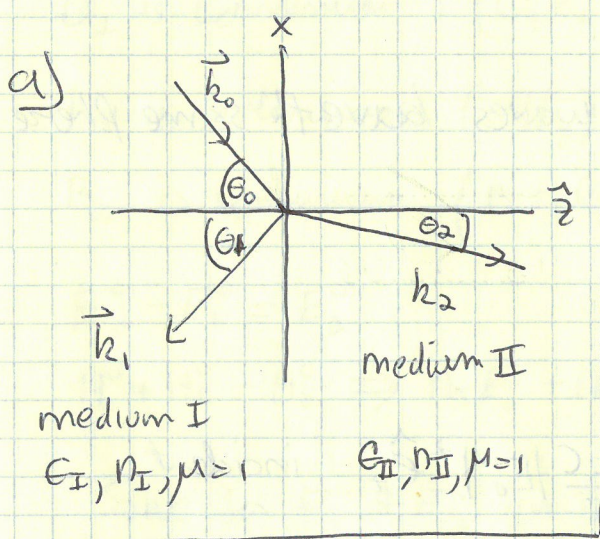 x
a)
k⃗₀
θ₀
ẑ
θ₁
θ₂
k₂
k⃗₁
medium II
medium I
ϵ_I, n_I, μ=1
ϵ_II, n_II, μ=1